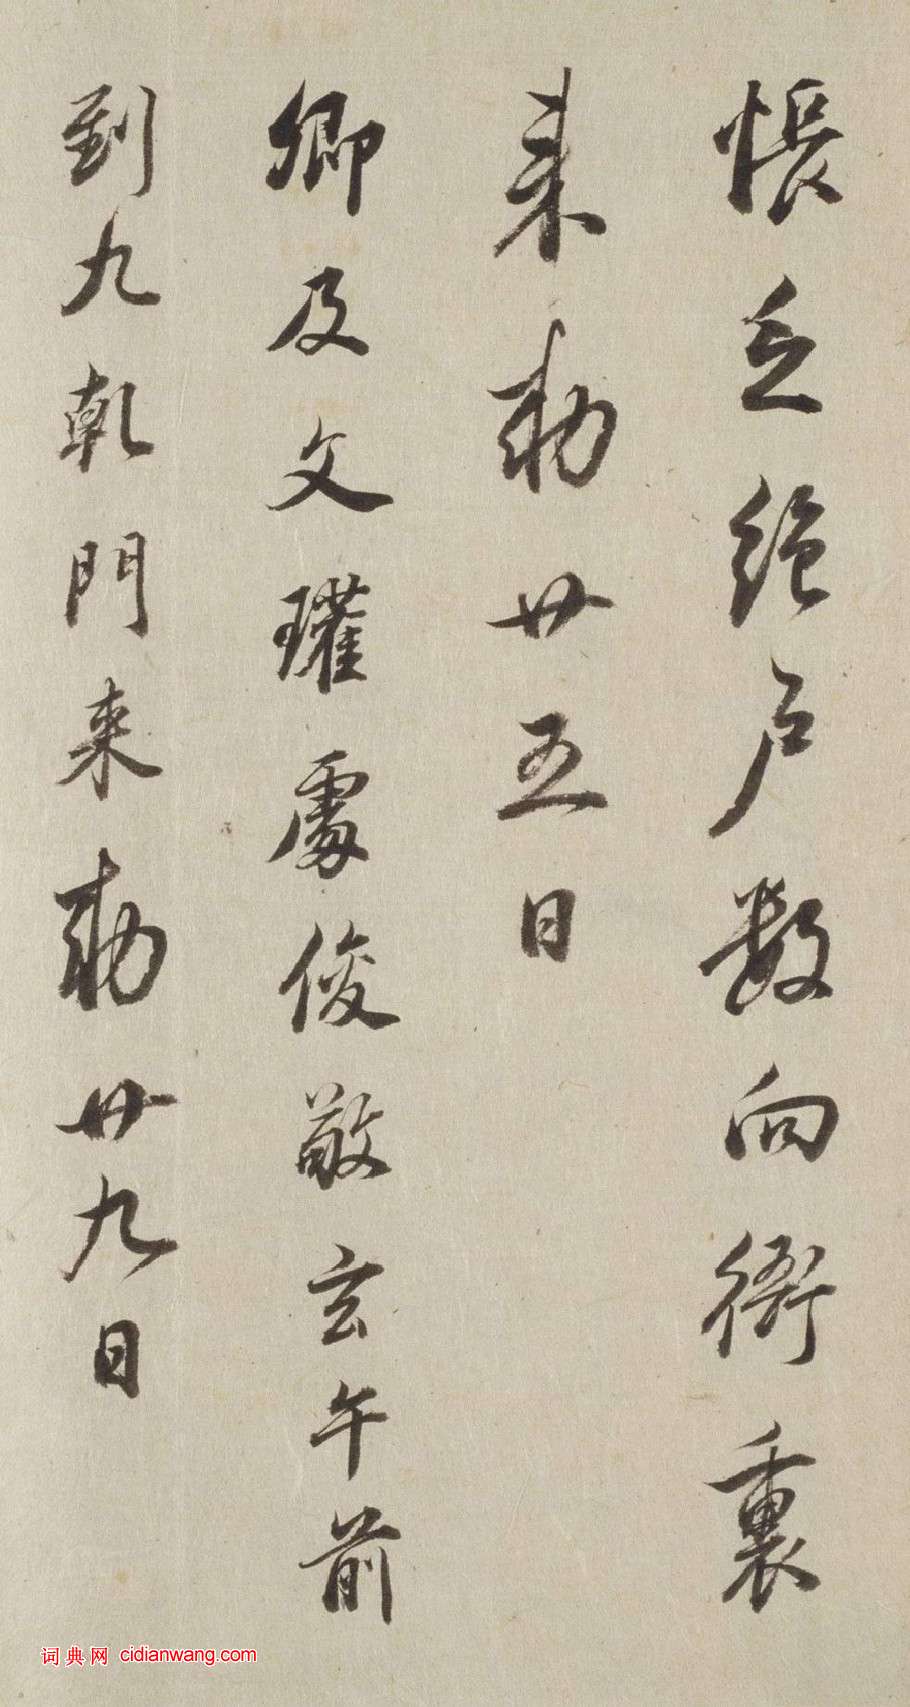 悵乏絕戶數向衙裏
来勅廿五日
卿及文瓘處俊敬玄午前
到九軋門来勅廿九日
词典网 cidianwang.com